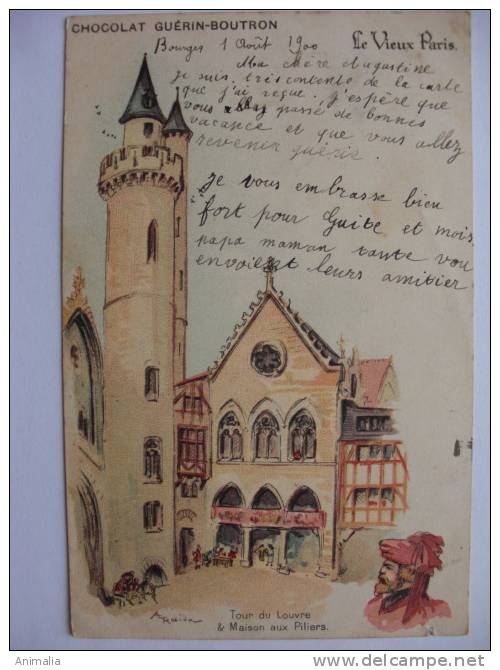 CHOCOLAT GUÉRIN-BOUTRON
Le Vieux Paris.
Bourges 1 Août 1900
Ma chère Augustine
je suis très contente de la carte
que j'ai reçue. j'espère que
vous allez passé de bonnes
vacance et que vous allez
revenir guérie.
Je vous embrasse bien
fort pour Guite et mois
papa maman tante vou
envoient leurs amitier
Tour du Louvre
& Maison aux Piliers.
Animalia
http://www.delcampe.net